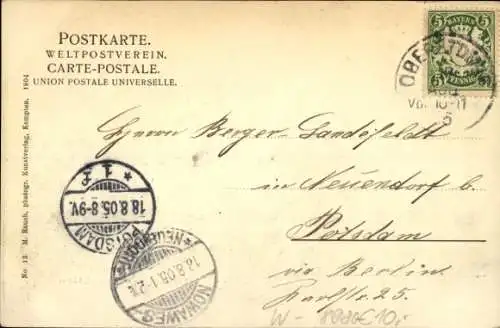 POSTKARTE.
WELTPOSTVEREIN.
CARTE-POSTALE.
UNION POSTALE UNIVERSELLE.
5 BAYERN 5
PFENNIG
Vor. 10-11
Herrn Berger-Landefeldt
in Neuendorf b
Potsdam
via Berlin
Karlstr. 25.
* 1 z
18.8.05.8-9V.
POTSDAM
* NEUENDORF *
18.8.05.1-2N.
NOWAWES-
W-
10,-
No. 13. M. Rauch, photogr. Kunstverlag, Kempten. 1904